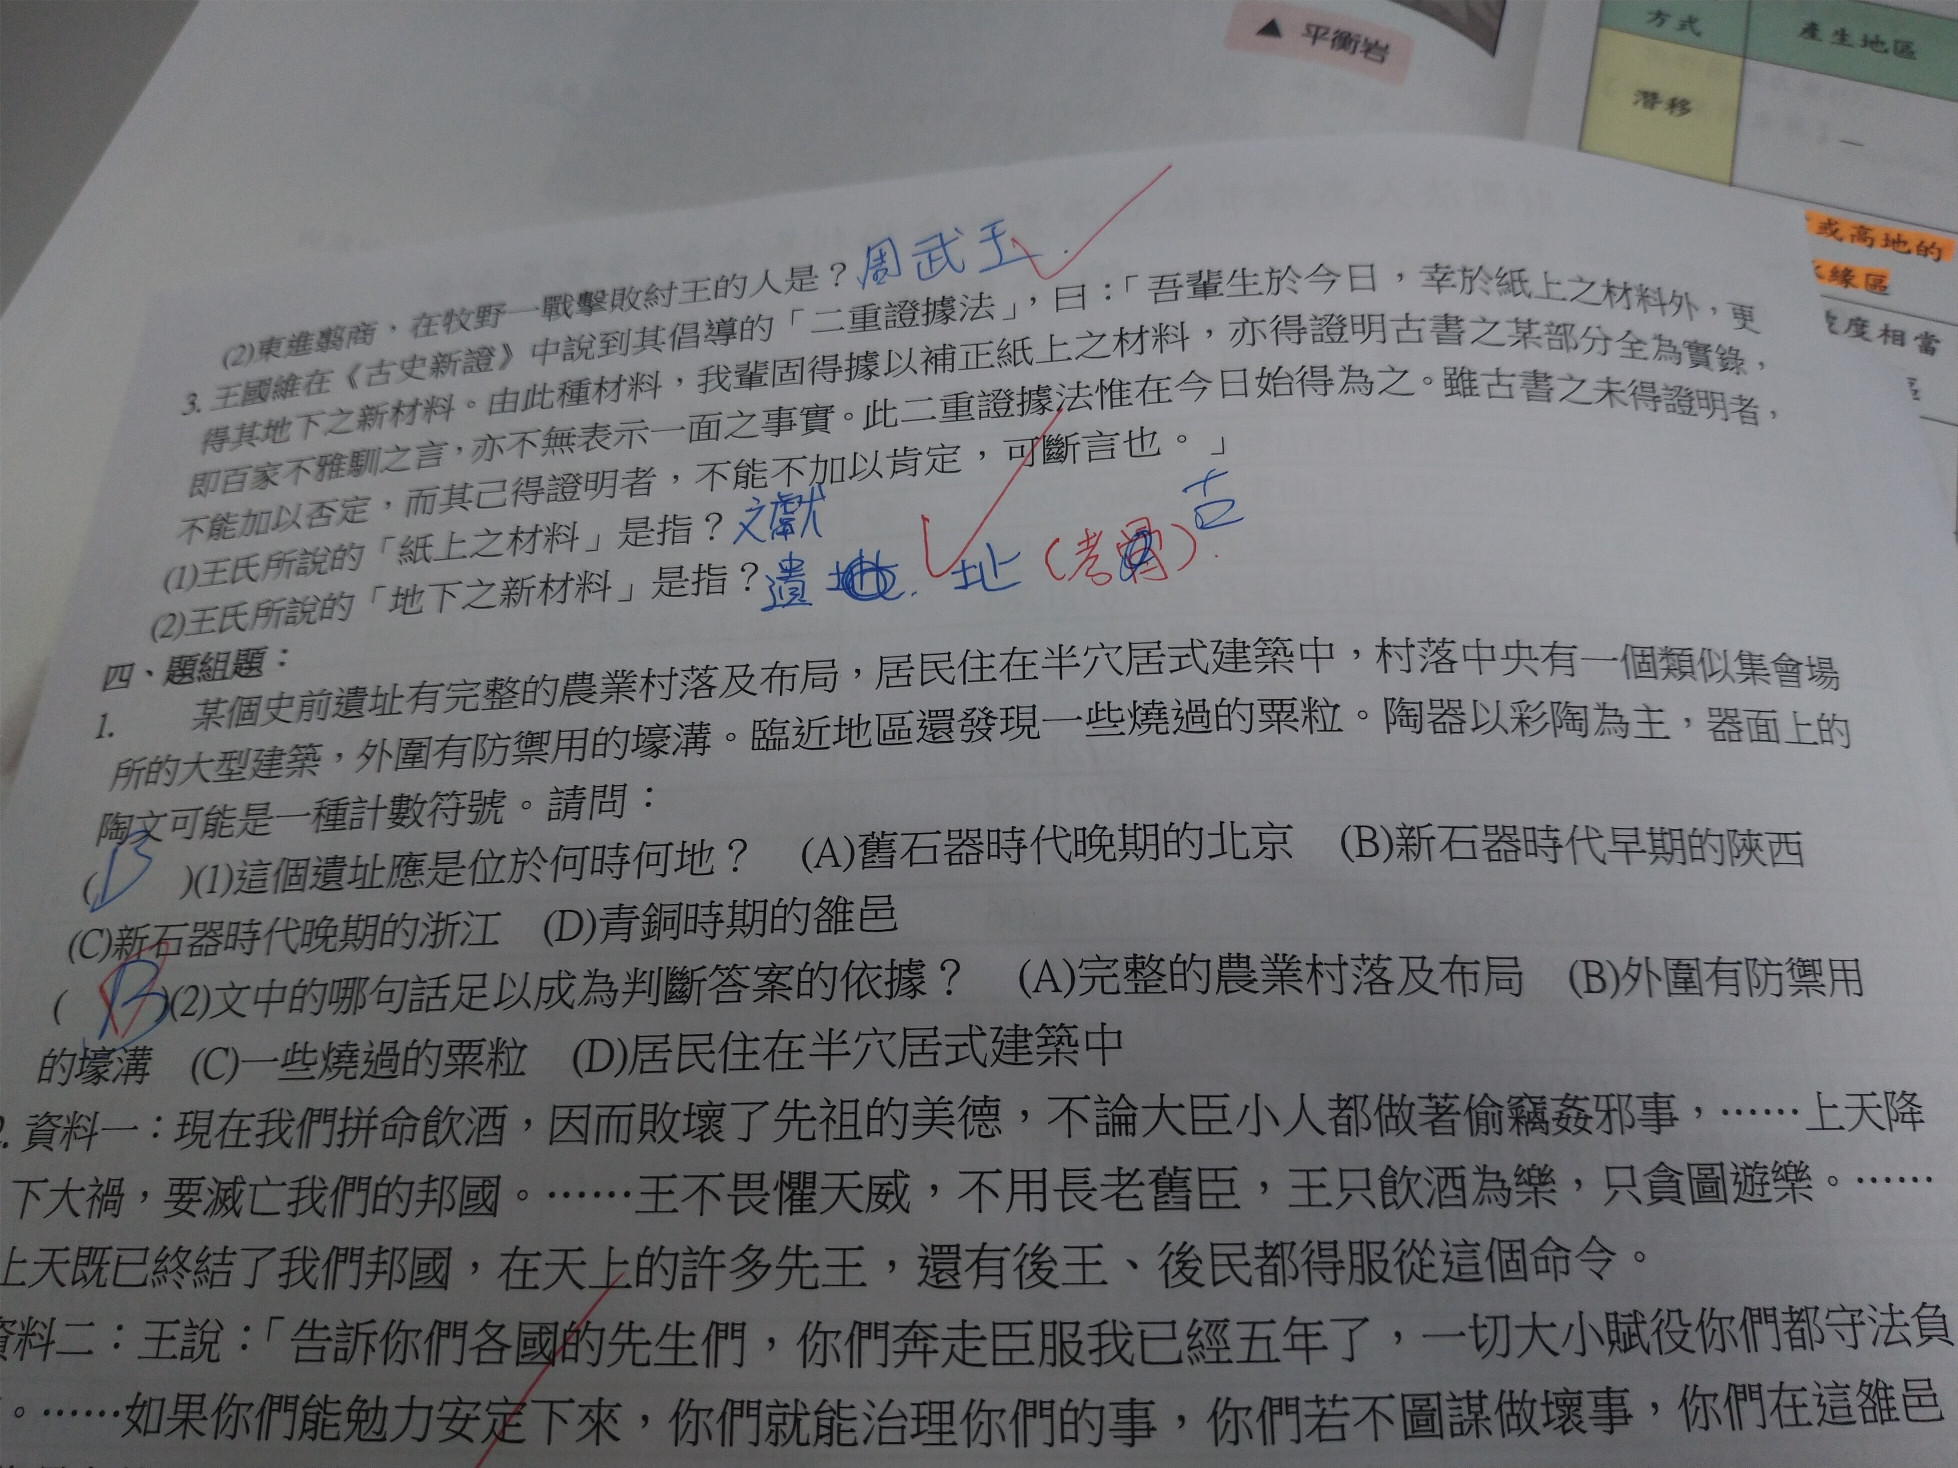 ▲ 平衡岩
方式 產生地區
潛移 —
或高地的
緣區
度相當
(2)東進翦商，在牧野一戰擊敗紂王的人是？周武王
3. 王國維在《古史新證》中說到其倡導的「二重證據法」，曰：「吾輩生於今日，幸於紙上之材料外，更
得其地下之新材料。由此種材料，我輩固得據以補正紙上之材料，亦得證明古書之某部分全為實錄，
即百家不雅馴之言，亦不無表示一面之事實。此二重證據法惟在今日始得為之。雖古書之未得證明者，
不能加以否定，而其已得證明者，不能不加以肯定，可斷言也。」
(1)王氏所說的「紙上之材料」是指？文獻
(2)王氏所說的「地下之新材料」是指？遺址(考古)
四、題組題：
1. 某個史前遺址有完整的農業村落及布局，居民住在半穴居式建築中，村落中央有一個類似集會場
所的大型建築，外圍有防禦用的壕溝。臨近地區還發現一些燒過的粟粒。陶器以彩陶為主，器面上的
陶文可能是一種計數符號。請問：
( B )(1)這個遺址應是位於何時何地？ (A)舊石器時代晚期的北京 (B)新石器時代早期的陝西
(C)新石器時代晚期的浙江 (D)青銅時期的雒邑
( B )(2)文中的哪句話足以成為判斷答案的依據？ (A)完整的農業村落及布局 (B)外圍有防禦用
的壕溝 (C)一些燒過的粟粒 (D)居民住在半穴居式建築中
. 資料一：現在我們拼命飲酒，因而敗壞了先祖的美德，不論大臣小人都做著偷竊姦邪事，……上天降
下大禍，要滅亡我們的邦國。……王不畏懼天威，不用長老舊臣，王只飲酒為樂，只貪圖遊樂。……
上天既已終結了我們邦國，在天上的許多先王，還有後王、後民都得服從這個命令。
資料二：王說：「告訴你們各國的先生們，你們奔走臣服我已經五年了，一切大小賦役你們都守法負
。……如果你們能勉力安定下來，你們就能治理你們的事，你們若不圖謀做壞事，你們在這雒邑